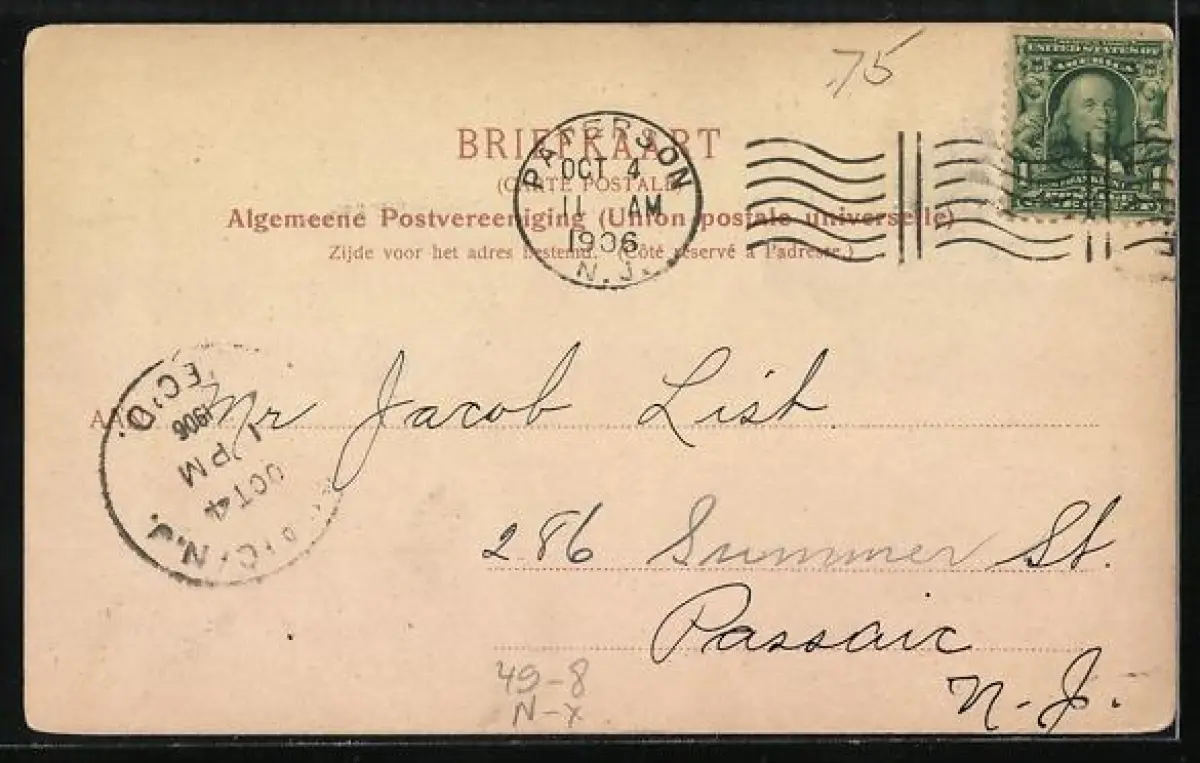 .75
UNITED STATES OF
AMERICA
BRIEFKAART
(CARTE POSTALE)
Algemeene Postvereeniging (Union postale universelle)
Zijde voor het adres bestemd. (Côté réservé à l'adresse.)
PATERSON
OCT 4
11 AM
1906
N.J.
Mr Jacob List
286 Summer St.
Passaic
N.J.
EC'D.
1906
1 PM
OCT 4
N.J.
49-8
N-x